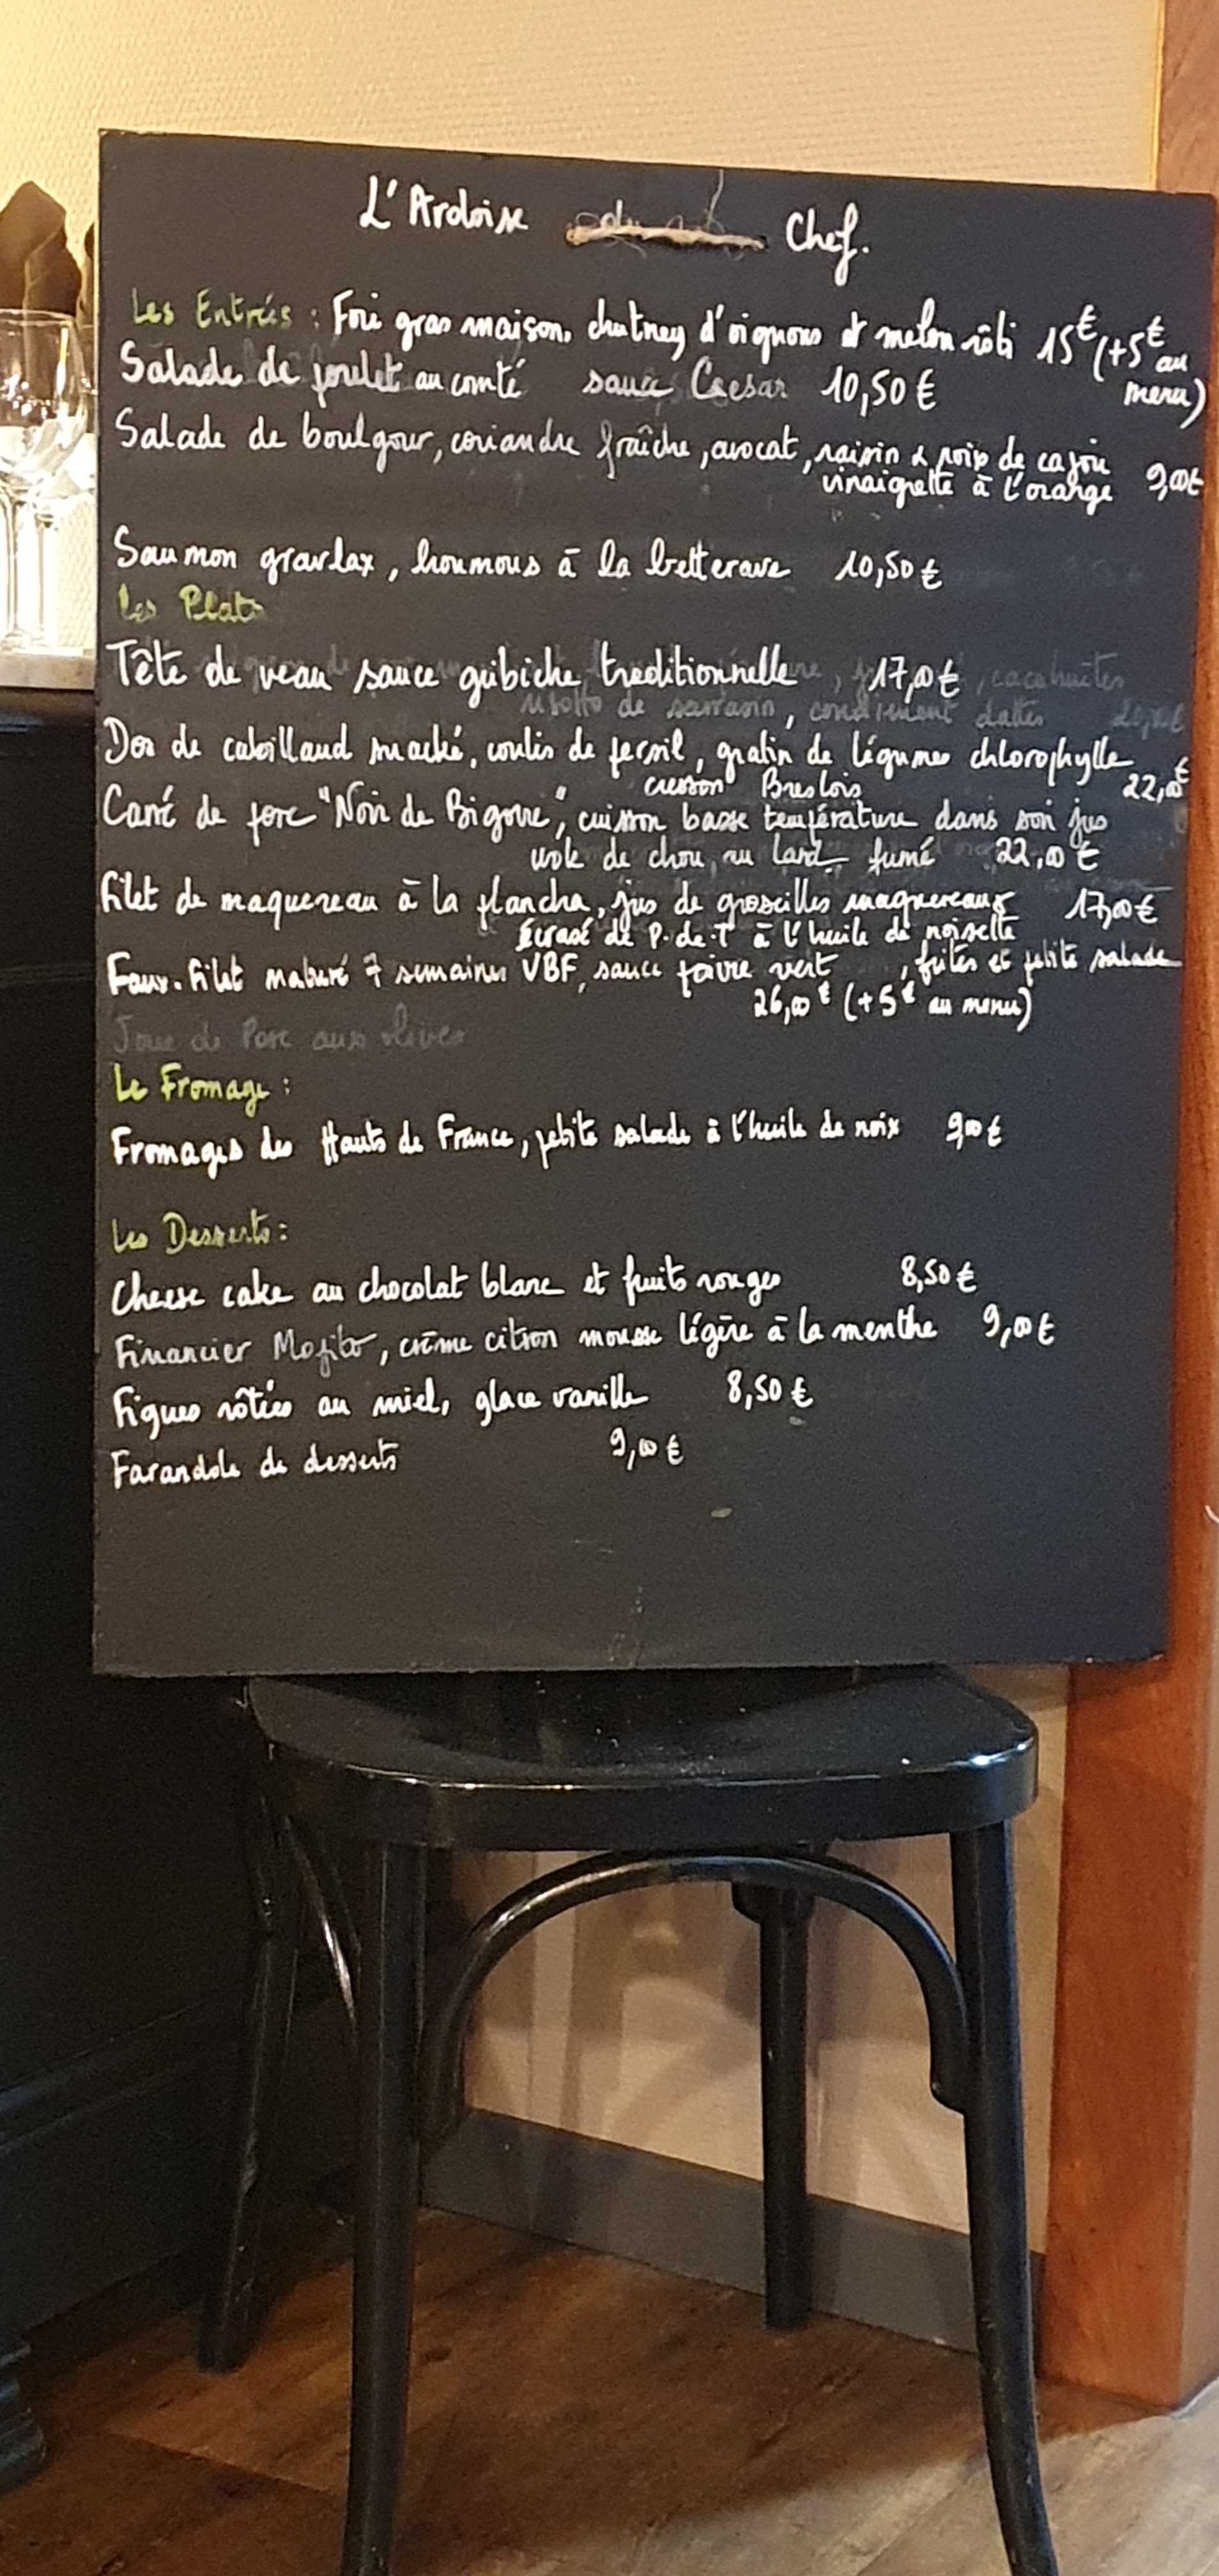 L'Ardoise du Chef.
Les Entrées : Foie gras maison, chutney d'oignons et melon rôti 15€ (+5€ au menu)
Salade de poulet au comté sauce Caesar 10,50 €
Salade de boulgour, coriandre fraîche, avocat, raisin & noix de cajou 9,00€
vinaigrette à l'orange
Saumon gravlax, houmous à la betterave 10,50 €
Les Plats
Tête de veau sauce gribiche traditionnelle 17,00 €
, cacahuètes
risotto de sarrasin, condiment dattes
Dos de cabillaud nacré, coulis de persil, gratin de légumes chlorophylle 22,00€
cresson Breslois
Carré de porc "Noir de Bigorre", cuisson basse température dans son jus
de chou au lard fumé 22,00 €
Filet de maquereau à la plancha, jus de groseilles maquereaux 17,00 €
Écrasé de P.de.T à l'huile de noisette
Faux-filet maturé 7 semaines VBF, sauce poivre vert , frites et petite salade
26,00 € (+5€ au menu)
Joue de Porc aux olives
Le Fromage :
Fromages des Hauts de France, petite salade à l'huile de noix 9,00 €
Les Desserts :
Cheese cake au chocolat blanc et fruits rouges 8,50 €
Financier Mojito, crème citron mousse légère à la menthe 9,00 €
Figues rôties au miel, glace vanille 8,50 €
Farandole de desserts 9,00 €